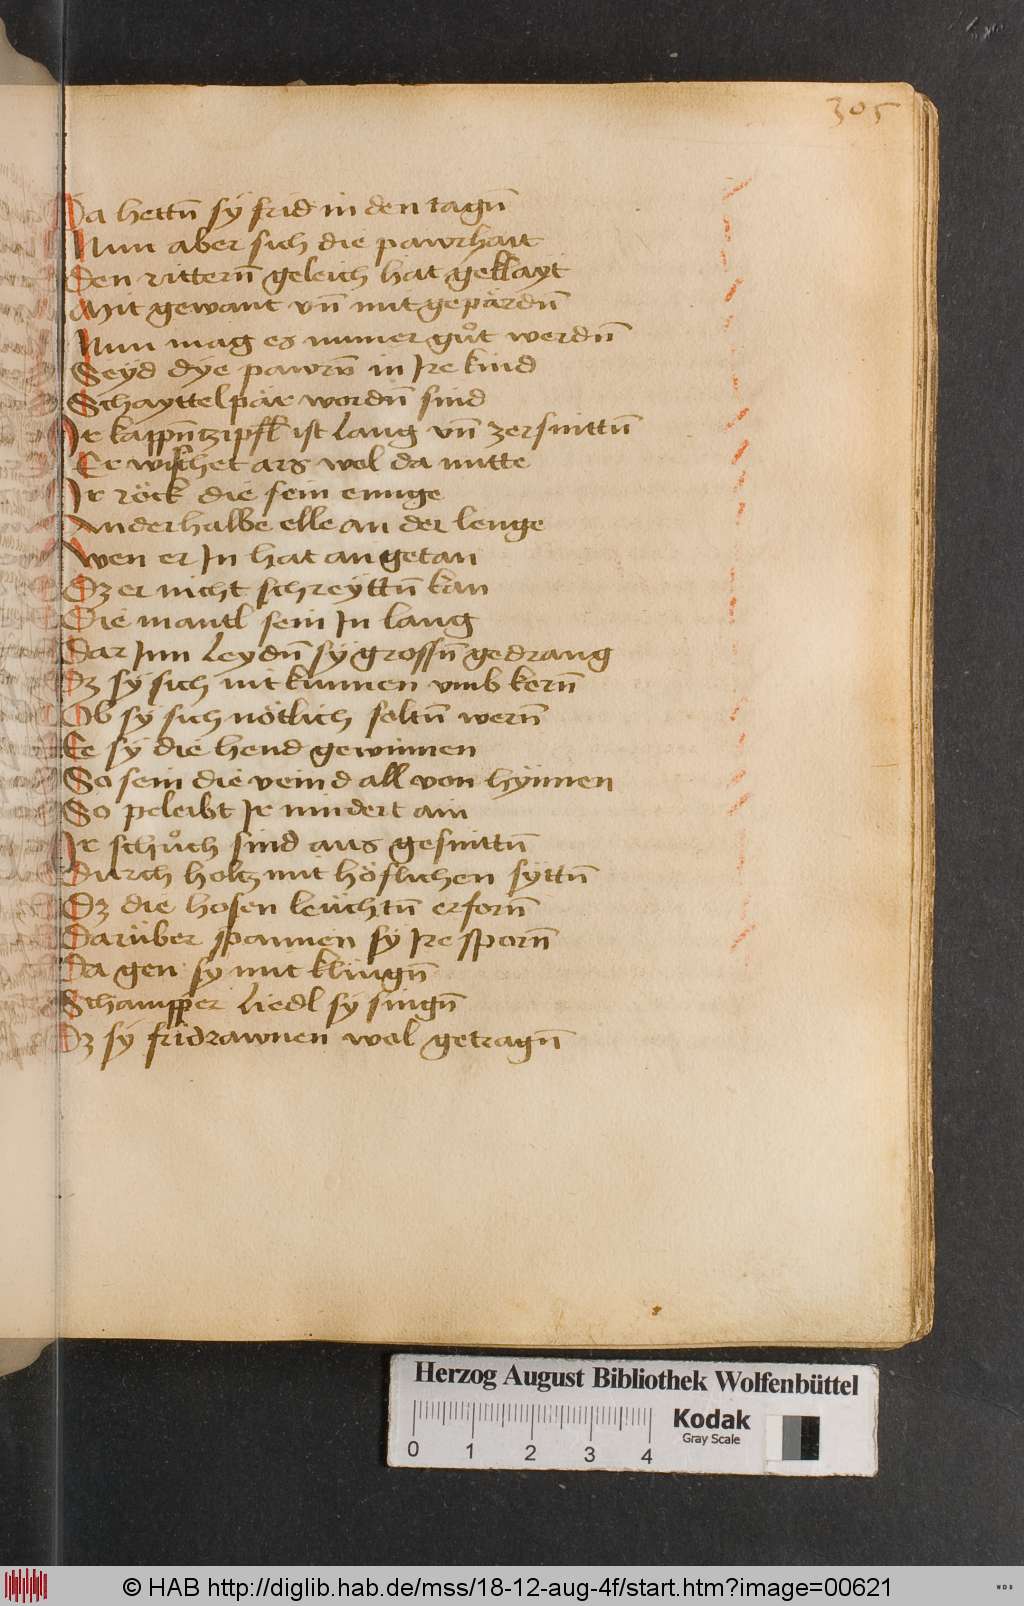 305
Da hettn̄ sÿ frid in den tagn̄
Nun aber sich die pawrhait
Den rittern̄ geleich hat geklayt
Mit gewant vn̄ mit gepärdn̄
Nun mag es nimer gůt werdn̄
Seyd dye pawrn̄ in Ire kind
Schayttelpär wordn̄ sind
Ir kappn̄tzipfl ist lang vn̄ zersnittn̄
Er wischet ars wol da mitte
Ir röck die sein ennge
Anderhalbe elle an der lenge
Wen er In hat an getan
Dz er nicht schreÿttn̄ kan
Die mantl sein In lang
Dar Inn Leydn̄ sÿ grossn̄ gedrang
Dz sÿ sich nit kunnen vmb kern̄
Ob sÿ sich nötlich soltn̄ wern̄
Ee sÿ die hend gewinnen
So sein die veind all von hÿnnen
So peleibt Ir nindert ain
Ir schůch sind aus gesnittn̄
Durch holtz mit höflichen sÿttn̄
Dz die hosen leüchtn̄ erforn̄
Darüber spannen sÿ Ire sporn̄
Da gen sy mit klingn̄
Schampper Liedl sy singn̄
Dz sÿ fridrawnen wol getragn̄
Herzog August Bibliothek Wolfenbüttel
Kodak
Gray Scale
0 1 2 3 4
© HAB http://diglib.hab.de/mss/18-12-aug-4f/start.htm?image=00621